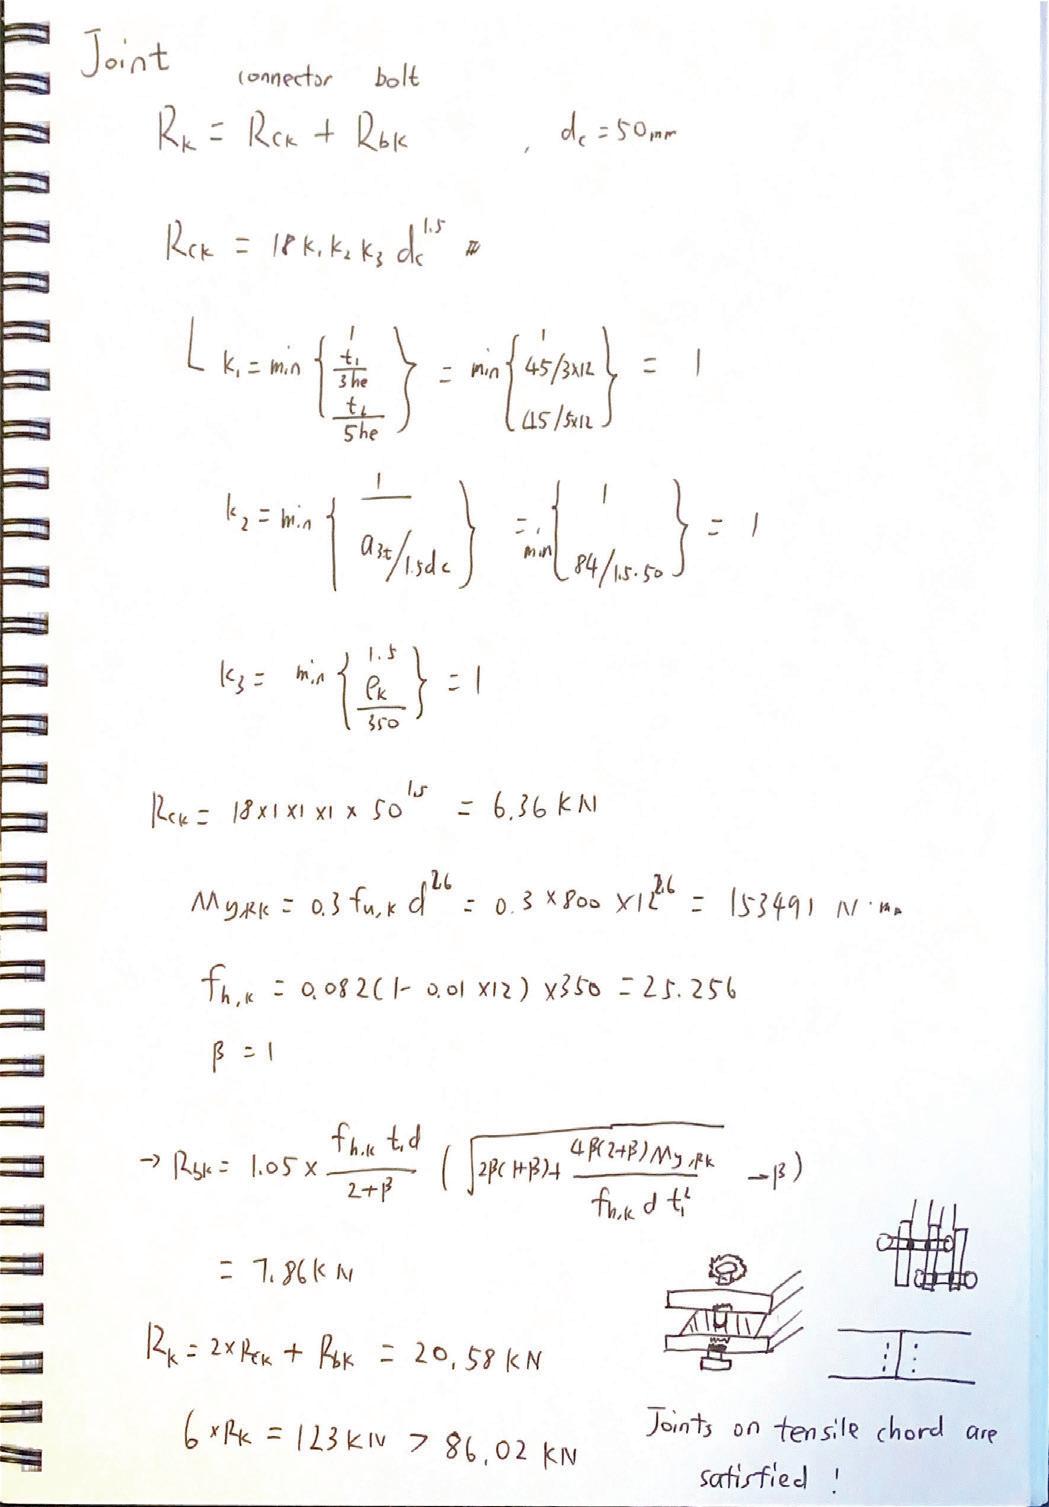 Joint
connector bolt
Rk = Rck + Rbk , dc = 50mm
Rck = 18 k1 k2 k3 dc^1.5
k1 = min { 1, t1/3he, t2/5he } = min { 1, 45/3x12, 45/5x12 } = 1
k2 = min { 1, a3t/1.5dc } = min { 1, 84/1.5·50 } = 1
k3 = min { 1.5, ρk/350 } = 1
Rck = 18 x 1 x 1 x 1 x 50^1.5 = 6.36 kN
My,Rk = 0.3 fu,k d^2.6 = 0.3 x 800 x 12^2.6 = 153491 N·mm
fh,k = 0.082(1- 0.01 x12) x350 = 25.256
β = 1
→ Rbk = 1.05 x fh.k t1d / 2+β ( √(2β(1+β)+ 4β(2+β)My,Rk / fh,k d t1²) - β)
= 7.86 kN
Rk = 2x Rck + Rbk = 20,58 kN
6 x Rk = 123 kN > 86,02 kN
Joints on tensile chord are
satisfied !